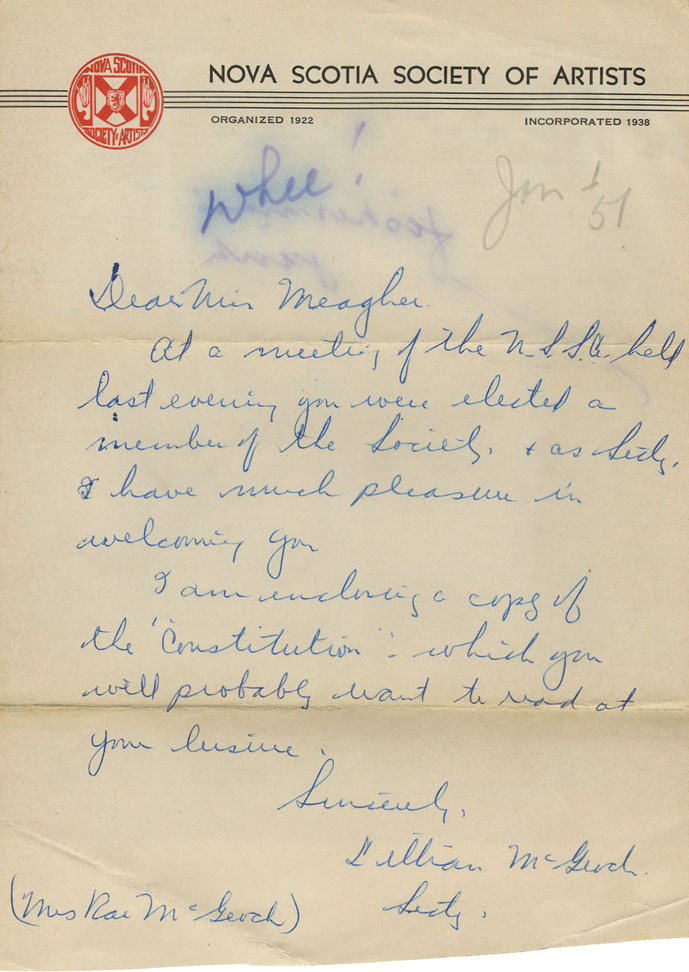 NOVA SCOTIA
SOCIETY of ARTISTS
NOVA SCOTIA SOCIETY OF ARTISTS
ORGANIZED 1922
INCORPORATED 1938
whee!
Jan 1
51
Dear Miss Meagher.
At a meeting of the N.S.S.A. held
last evening you were elected a
member of the Society, & as Secty.
I have much pleasure in
welcoming you
I am enclosing a copy of
the "Constitution" - which you
will probably want to read at
your leisure.
Sincerely,
Lillian McGeoch.
(Mrs Rae McGeoch)
Secty.